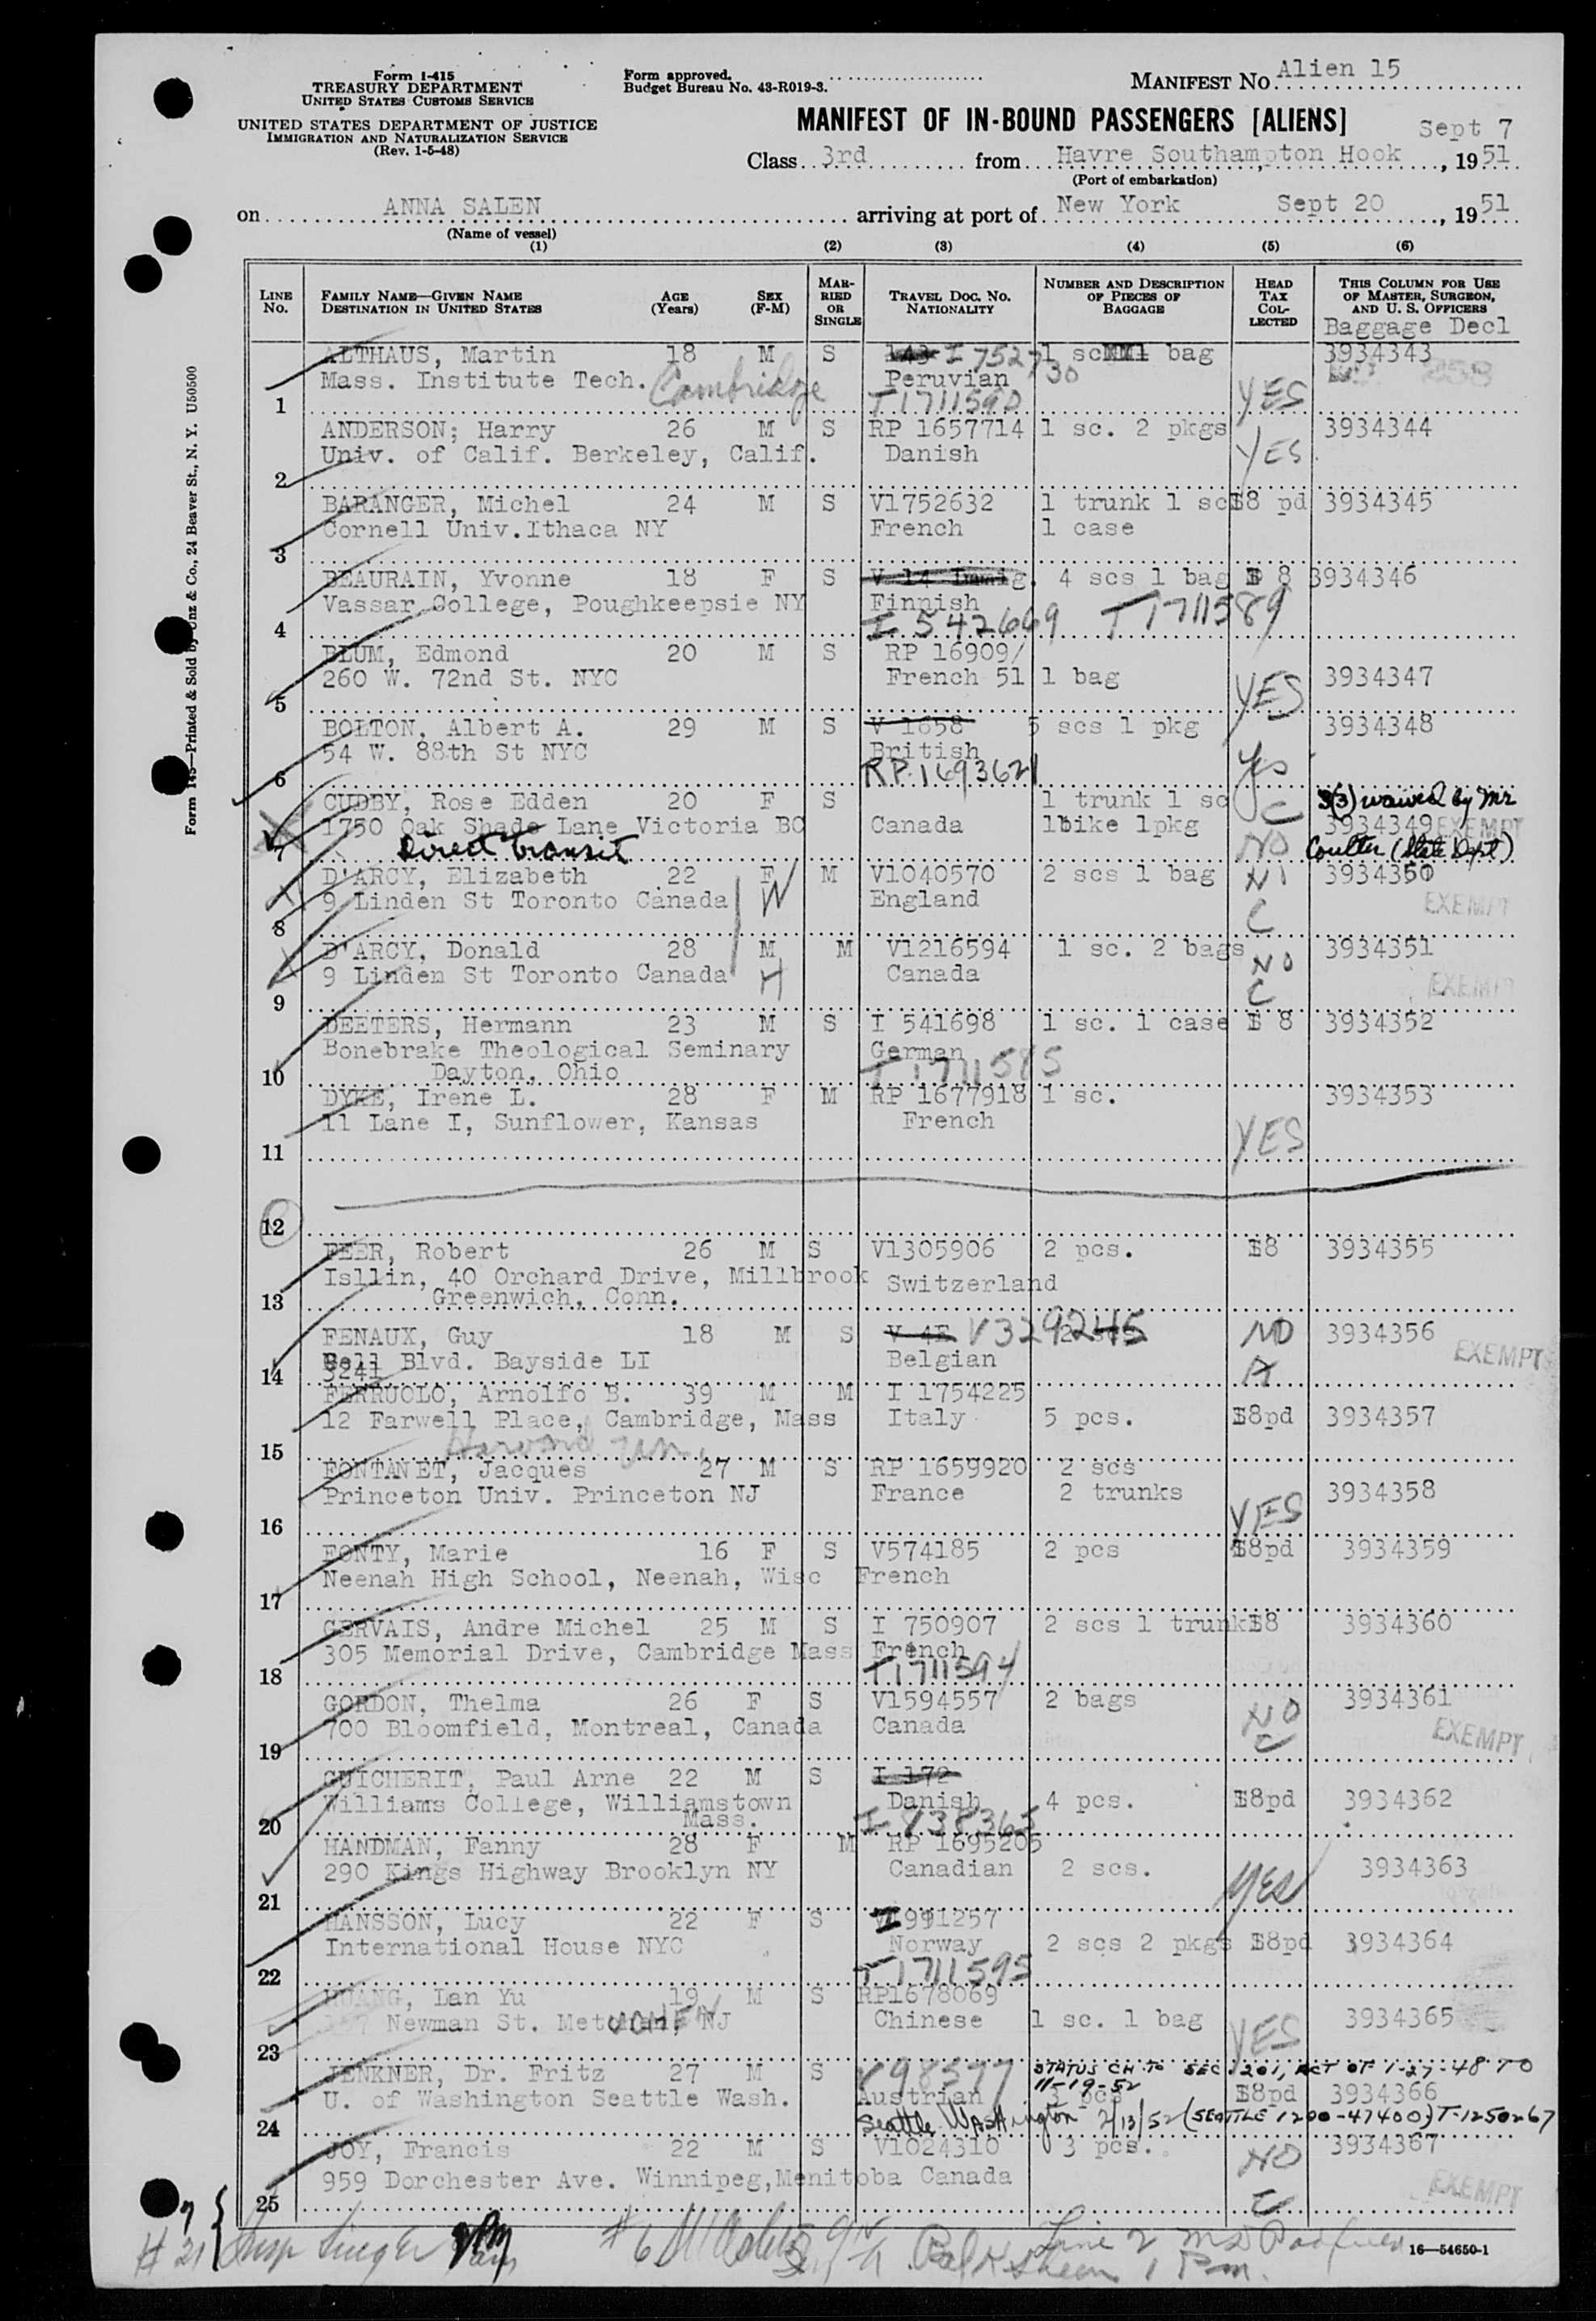 Form I-415
TREASURY DEPARTMENT
UNITED STATES CUSTOMS SERVICE
UNITED STATES DEPARTMENT OF JUSTICE
IMMIGRATION AND NATURALIZATION SERVICE
(Rev. 1-5-48)
Form approved.
Budget Bureau No. 43-R019-3.
MANIFEST NO. Alien 15
MANIFEST OF IN-BOUND PASSENGERS [ALIENS]
Sept 7
Class 3rd from Havre Southampton Hook, 1951
(Port of embarkation)
on ANNA SALEN arriving at port of New York Sept 20, 1951
(Name of vessel)
(1) (2) (3) (4) (5) (6)
LINE NO. FAMILY NAME—GIVEN NAME DESTINATION IN UNITED STATES AGE (Years) SEX (F-M) MARRIED OR SINGLE TRAVEL DOC. NO. NATIONALITY NUMBER AND DESCRIPTION OF PIECES OF BAGGAGE HEAD TAX COLLECTED THIS COLUMN FOR USE OF MASTER, SURGEON, AND U. S. OFFICERS
Baggage Decl
ALTHAUS, Martin 18 M S I 752730 1 sc 1 bag 3934343
Mass. Institute Tech. Cambridge Peruvian YES
1 T1711590
ANDERSON; Harry 26 M S RP 1657714 1 sc. 2 pkgs 3934344
Univ. of Calif. Berkeley, Calif. Danish YES
2
BARANGER, Michel 24 M S V1752632 1 trunk 1 sc $8 pd 3934345
Cornell Univ. Ithaca NY French 1 case
3
BEAURAIN, Yvonne 18 F S V 14 4 scs 1 bag $ 8 3934346
Vassar College, Poughkeepsie NY Finnish
4 I 542669 T1711589
BLUM, Edmond 20 M S RP 16909/
260 W. 72nd St. NYC French 51 1 bag YES 3934347
5
BOLTON, Albert A. 29 M S V 1658 5 scs 1 pkg 3934348
54 W. 88th St NYC British Yes
6 RP.1693621
CUDBY, Rose Edden 20 F S 1 trunk 1 sc C 3(3) waived by Mr
1750 Oak Shade Lane Victoria BC Canada 1bike 1pkg NO 3934349 EXEMPT
7 Direct Transit Coulter (State Dept)
D'ARCY, Elizabeth 22 F M V1040570 2 scs 1 bag NO 3934350
9 Linden St Toronto Canada W England C EXEMPT
8
D'ARCY, Donald 28 M M V1216594 1 sc. 2 bags 3934351
9 Linden St Toronto Canada H Canada NO C EXEMPT
9
DEETERS, Hermann 23 M S I 541698 1 sc. 1 case $ 8 3934352
Bonebrake Theological Seminary German
10 Dayton, Ohio T1711585
DYKE, Irene L. 28 F M RP 1677918 1 sc. 3934353
11 Lane I, Sunflower, Kansas French YES
11
12
FEER, Robert 26 M S V1305906 2 pcs. $8 3934355
Isllin, 40 Orchard Drive, Millbrook Switzerland
13 Greenwich, Conn.
FENAUX, Guy 18 M S V 4E V329245 NO 3934356
3241 Bell Blvd. Bayside LI Belgian A EXEMPT
14
FERRUOLO, Arnolfo B. 39 M M I 1754225
12 Farwell Place, Cambridge, Mass Italy 5 pcs. $8pd 3934357
15 Harvard Un.
FONTANET, Jacques 27 M S RP 1659920 2 scs
Princeton Univ. Princeton NJ France 2 trunks YES 3934358
16
FONTY, Marie 16 F S V574185 2 pcs $8pd 3934359
Neenah High School, Neenah, Wisc French
17
GERVAIS, Andre Michel 25 M S I 750907 2 scs 1 trunk $8 3934360
305 Memorial Drive, Cambridge Mass French
18 T1711594
GORDON, Thelma 26 F S V1594557 2 bags 3934361
700 Bloomfield, Montreal, Canada Canada NO C EXEMPT
19
GUICHERIT, Paul Arne 22 M S I 172
Williams College, Williamstown Danish 4 pcs. $8pd 3934362
20 Mass. I 838365
HANDMAN, Fanny 28 F M RP 1695205
290 Kings Highway Brooklyn NY Canadian 2 scs. Yes 3934363
21
HANSSON, Lucy 22 F S I 991257
International House NYC Norway 2 scs 2 pkgs $8pd 3934364
22 T1711595
HUANG, Lan Yu 19 M S RP1678069
Newman St. Metuchen, NJ Chinese 1 sc. 1 bag YES 3934365
23
JENKNER, Dr. Fritz 27 M S V98577 STATUS CH. TO SEC. 201, ACT OF 1-27-48 TO
11-19-52
U. of Washington Seattle Wash. Austrian 3 pcs $8pd 3934366
24 Seattle Washington 2/13/52 (SEATTLE 1200-47400) T-1250267
JOY, Francis 22 M S V1024310 3 pcs. NO 3934367
959 Dorchester Ave. Winnipeg, Menitoba Canada C EXEMPT
25
7
# 21 Insp Singer
#6
Line 2
1 P.m.
16—54650-1
Form 145—Printed & Sold by Unz & Co., 24 Beaver St., N. Y. U50500